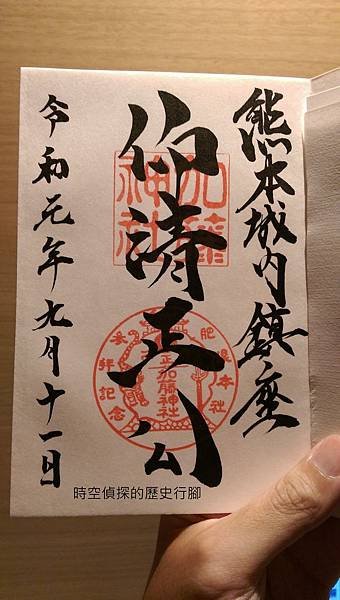 熊本城内鎮座
仰清正公
令和元年九月十一日
加藤
神社
参拝記念
加藤神社
時空偵探的歷史行腳